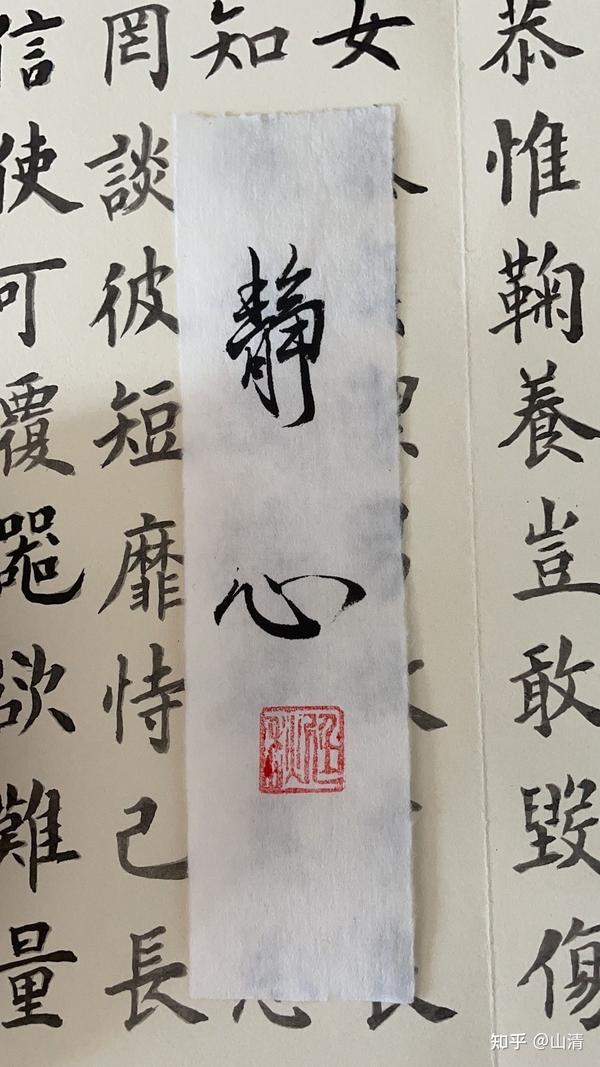 恭惟鞠養豈敢毀傷
女
知
罔談彼短靡恃己長
信使可覆器欲難量
靜心
知乎 @山清